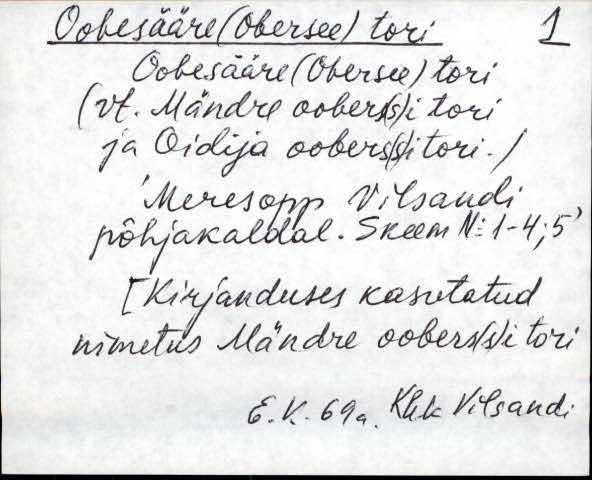 Oobesääre (Obersee) tori 1
Oobesääre (Obersee) tori
(vt. Mändre oobers(s)i tori
ja Oidija oobers(s)i tori.)
'Meresopp Vilsandi
põhjakaldal. Skeem №: 1-4; 5'
[Kirjanduses kasutatud
nimetus Mändre oobers(s)i tori
E. V. 69a. Khk Vilsandi